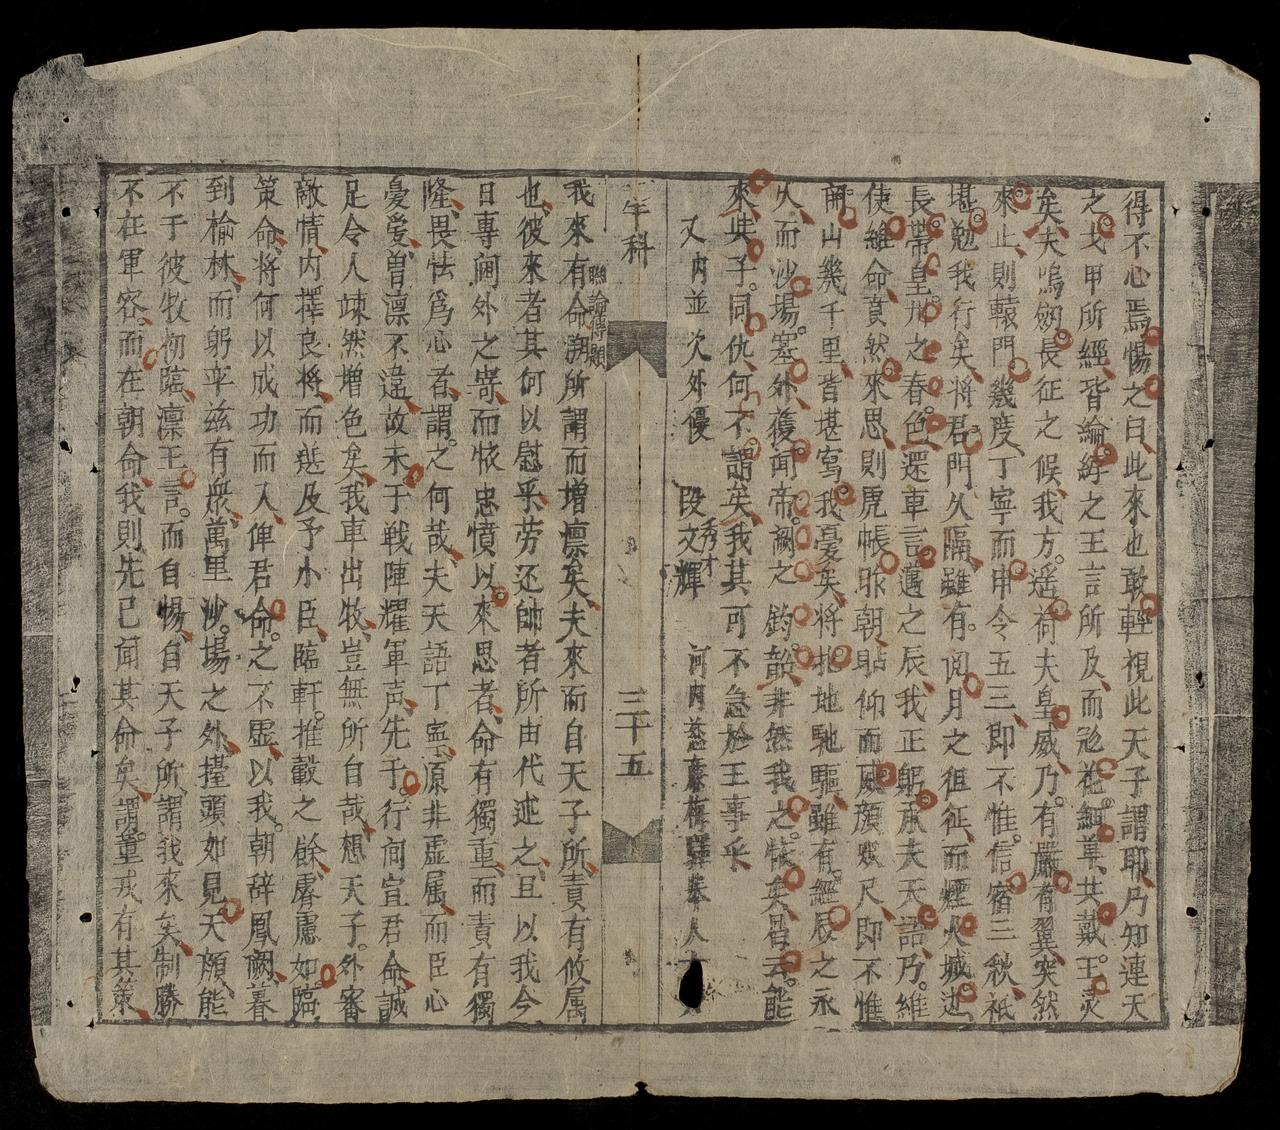 得不心焉惕之曰此來也敢輕視此天子謂耶乃知連天
之戈甲所經皆綸綍之王言所及而冠裳共戴王灵
矣夫嗚劒長征之候我方遥荷夫皇威乃有嚴有翼突然
來止則轅門幾度丁寧而申令五三即不惟信宿三秋祗
堪勉我行矣將君門久隔雖有閱月之徂征而煙火城迯
長帶皇州之春色還車言邁之辰我正躬承夫天語乃維
使維命賁然來思則虎帳昨朝貼仰而威顔咫尺即不惟
關山幾千里皆堪寫我憂矣將扎地馳驅雖有經辰之永
久而沙場塞外獲聞帝闕之鈞
來此子同仇何不謂矣我其可不急於王事乎
又内並次外優 段文輝 秀才 河内慈廉梅驛舉人
年科
三十五
聯諭傳題
我來有命溯所謂而增凛矣夫來而自天子所責有攸属
也彼來者其何以慰乎劳还帥者所由代述之且以我今
日專閫外之寄而恢忠憤以來思者命有獨重而責有獨
隆畏怯爲心者謂之何哉夫天語丁寧原非虚属而臣心
憂爱曽凛不違故未于戦陣耀軍声先于行間宣君命誠
足令人竦然增色矣我車出牧豈無所自哉想天子外審
敵情内擇良將而逖及予小臣臨軒推轂之餘廑慮如臨
策命將何以成功而入俾君命之不虚以我朝辞鳳闕暮
到榆林而躬率兹有衆萬里沙場之外擡頭如見天顔能
不于彼牧初臨凛王言而自惕自天子所謂我來矣制勝
不在軍容而在朝命我則先已闻其命矣謂董戎有其策